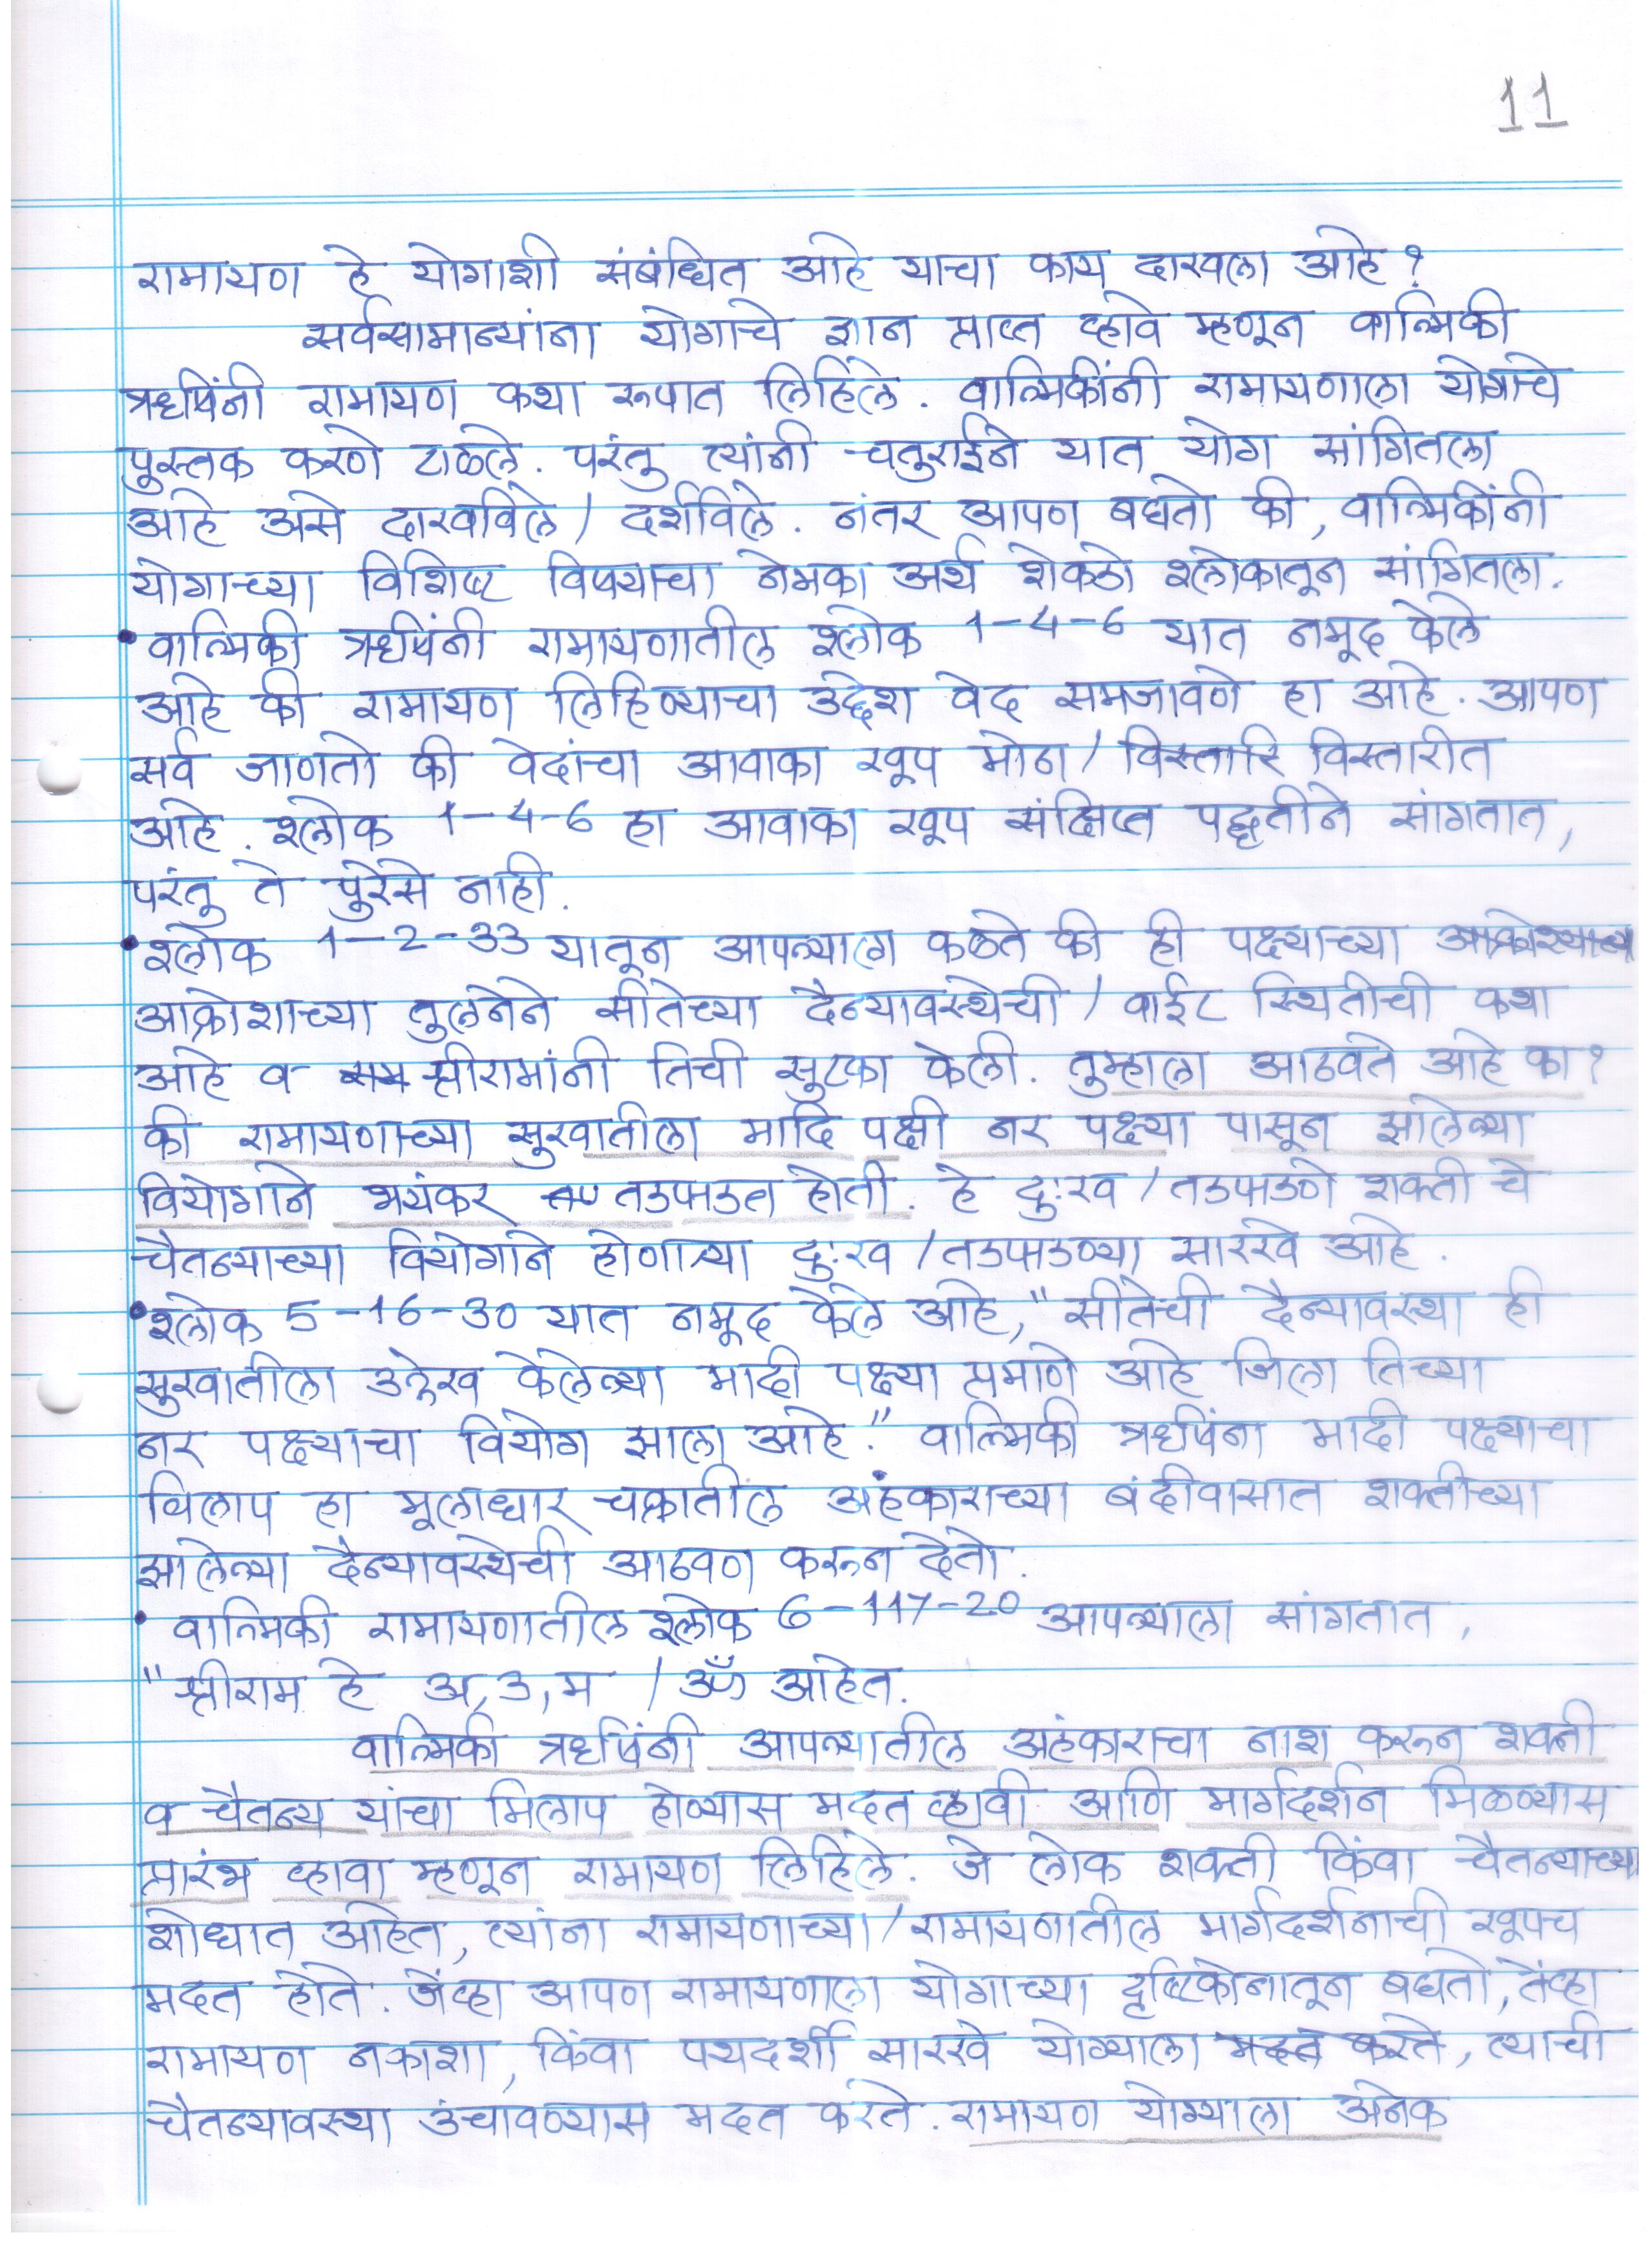 11
रामायण हे योगाशी संबंधित आहे याचा काय दाखला आहे?
सर्वसामान्यांना योगाचे ज्ञान प्राप्त व्हावे म्हणून वाल्मिकी
ऋषिंनी रामायण कथा रूपात लिहिले. वाल्मिकींनी रामायणाला योगाचे
पुस्तक करणे टाळले. परंतु त्यांनी चतुराईने यात योग सांगितला
आहे असे दाखविले / दर्शविले. नंतर आपण बघतो की, वाल्मिकींनी
योगाच्या विशिष्ट विषयाचा नेमका अर्थ शेकडो श्लोकातून सांगितला.
• वाल्मिकी ऋषिंनी रामायणातील श्लोक 1-4-6 यात नमूद केले
आहे की रामायण लिहिण्याचा उद्देश वेद समजावणे हा आहे. आपण
सर्व जाणतो की वेदांचा आवाका खूप मोठा / विस्तारि विस्तारीत
आहे. श्लोक 1-4-6 हा आवाका खूप संक्षिप्त पद्धतीने सांगतात,
परंतु ते पुरेसे नाही.
• श्लोक 1-2-33 यातून आपल्याला कळते की ही पक्ष्याच्या
आक्रोशाच्या तुलनेने सीतेच्या दैन्यावस्थेची / वाईट स्थितीची कथा
आहे व श्रीरामांनी तिची सुटका केली. तुम्हाला आठवते आहे का?
की रामायणाच्या सुरवातीला मादि पक्षी नर पक्ष्या पासून झालेल्या
वियोगाने भयंकर तडफडत होती. हे दुःख / तडफडणे शक्ती चे
चैतन्याच्या वियोगाने होणाऱ्या दुःख / तडफडण्या सारखे आहे.
• श्लोक 5-16-30 यात नमूद केले आहे, "सीतेची दैन्यावस्था ही
सुरवातीला उल्लेख केलेल्या मादी पक्ष्या प्रमाणे आहे जिला तिच्या
नर पक्ष्याचा वियोग झाला आहे." वाल्मिकी ऋषिंना मादी पक्ष्याचा
विलाप हा मूलाधार चक्रातील अहंकाराच्या बंदीवासात शक्तीच्या
झालेल्या दैन्यावस्थेची आठवण करून देतो.
• वाल्मिकी रामायणातील श्लोक 6-117-20 आपल्याला सांगतात,
"श्रीराम हे अ, उ, म / ॐ आहेत.
वाल्मिकी ऋषिंनी आपल्यातील अहंकाराचा नाश करून शक्ती
व चैतन्य यांचा मिलाप होण्यास मदत व्हावी आणि मार्गदर्शन मिळण्यास
प्रारंभ व्हावा म्हणून रामायण लिहिले. जे लोक शक्ती किंवा चैतन्याच्या
शोधात आहेत, त्यांना रामायणाच्या / रामायणातील मार्गदर्शनाची खूपच
मदत होते. जेंव्हा आपण रामायणाला योगाच्या दृष्टिकोनातून बघतो, तेंव्हा
रामायण नकाशा, किंवा पथदर्शी सारखे योग्याला मदत करते, त्याची
चैतन्यावस्था उंचावण्यास मदत करते. रामायण योग्याला अनेक